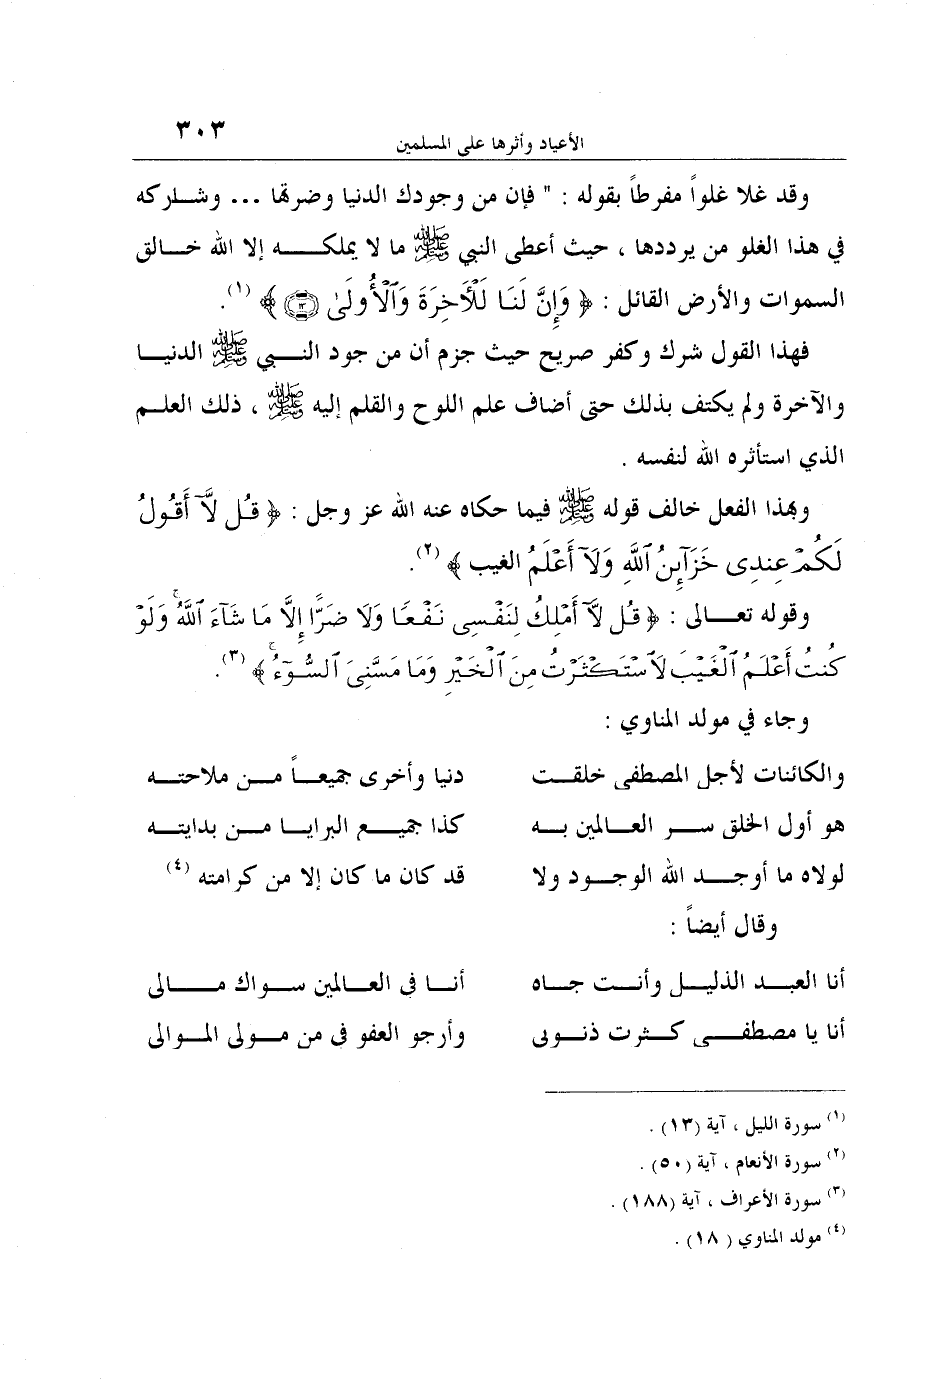 الأعياد وأثرها على المسلمين ٣٠٣
وقد غلا غلواً مفرطاً بقوله : " فإن من وجودك الدنيا وضرتها ... وشاركه
في هذا الغلو من يرددها ، حيث أعطى النبي ﷺ ما لا يملكه إلا الله خالق
السموات والأرض القائل : ﴿ وَإِنَّ لَنَا لَلْآخِرَةَ وَٱلْأُولَىٰ ١٣ ﴾ (١).
فهذا القول شرك وكفر صريح حيث جزم أن من جود النبي ﷺ الدنيا
والآخرة ولم يكتف بذلك حتى أضاف علم اللوح والقلم إليه ﷺ ، ذلك العلم
الذي استأثره الله لنفسه .
وبهذا الفعل خالف قوله ﷺ فيما حكاه عنه الله عز وجل : ﴿ قُل لَّآ أَقُولُ
لَكُمْ عِندِى خَزَآئِنُ ٱللَّهِ وَلَآ أَعْلَمُ الغيب ﴾ (٢).
وقوله تعالى : ﴿ قُل لَّآ أَمْلِكُ لِنَفْسِى نَفْعًا وَلَا ضَرًّا إِلَّا مَا شَآءَ ٱللَّهُ ۚ وَلَوْ
كُنتُ أَعْلَمُ ٱلْغَيْبَ لَٱسْتَكْثَرْتُ مِنَ ٱلْخَيْرِ وَمَا مَسَّنِىَ ٱلسُّوٓءُ ۚ ﴾ (٣).
وجاء في مولد المناوي :
والكائنات لأجل المصطفى خلقت دنيا وأخرى جميعاً من ملاحته
هو أول الخلق سر العالمين به كذا جميع البرايا من بدايته
لولاه ما أوجد الله الوجود ولا قد كان ما كان إلا من كرامته (٤)
وقال أيضاً :
أنا العبد الذليل وأنت جاه أنا فى العالمين سواك مالى
أنا يا مصطفى كثرت ذنوبى وأرجو العفو فى من مولى الموالى
(١) سورة الليل ، آية (١٣) .
(٢) سورة الأنعام ، آية (٥٠) .
(٣) سورة الأعراف ، آية (١٨٨) .
(٤) مولد المناوي ( ١٨) .